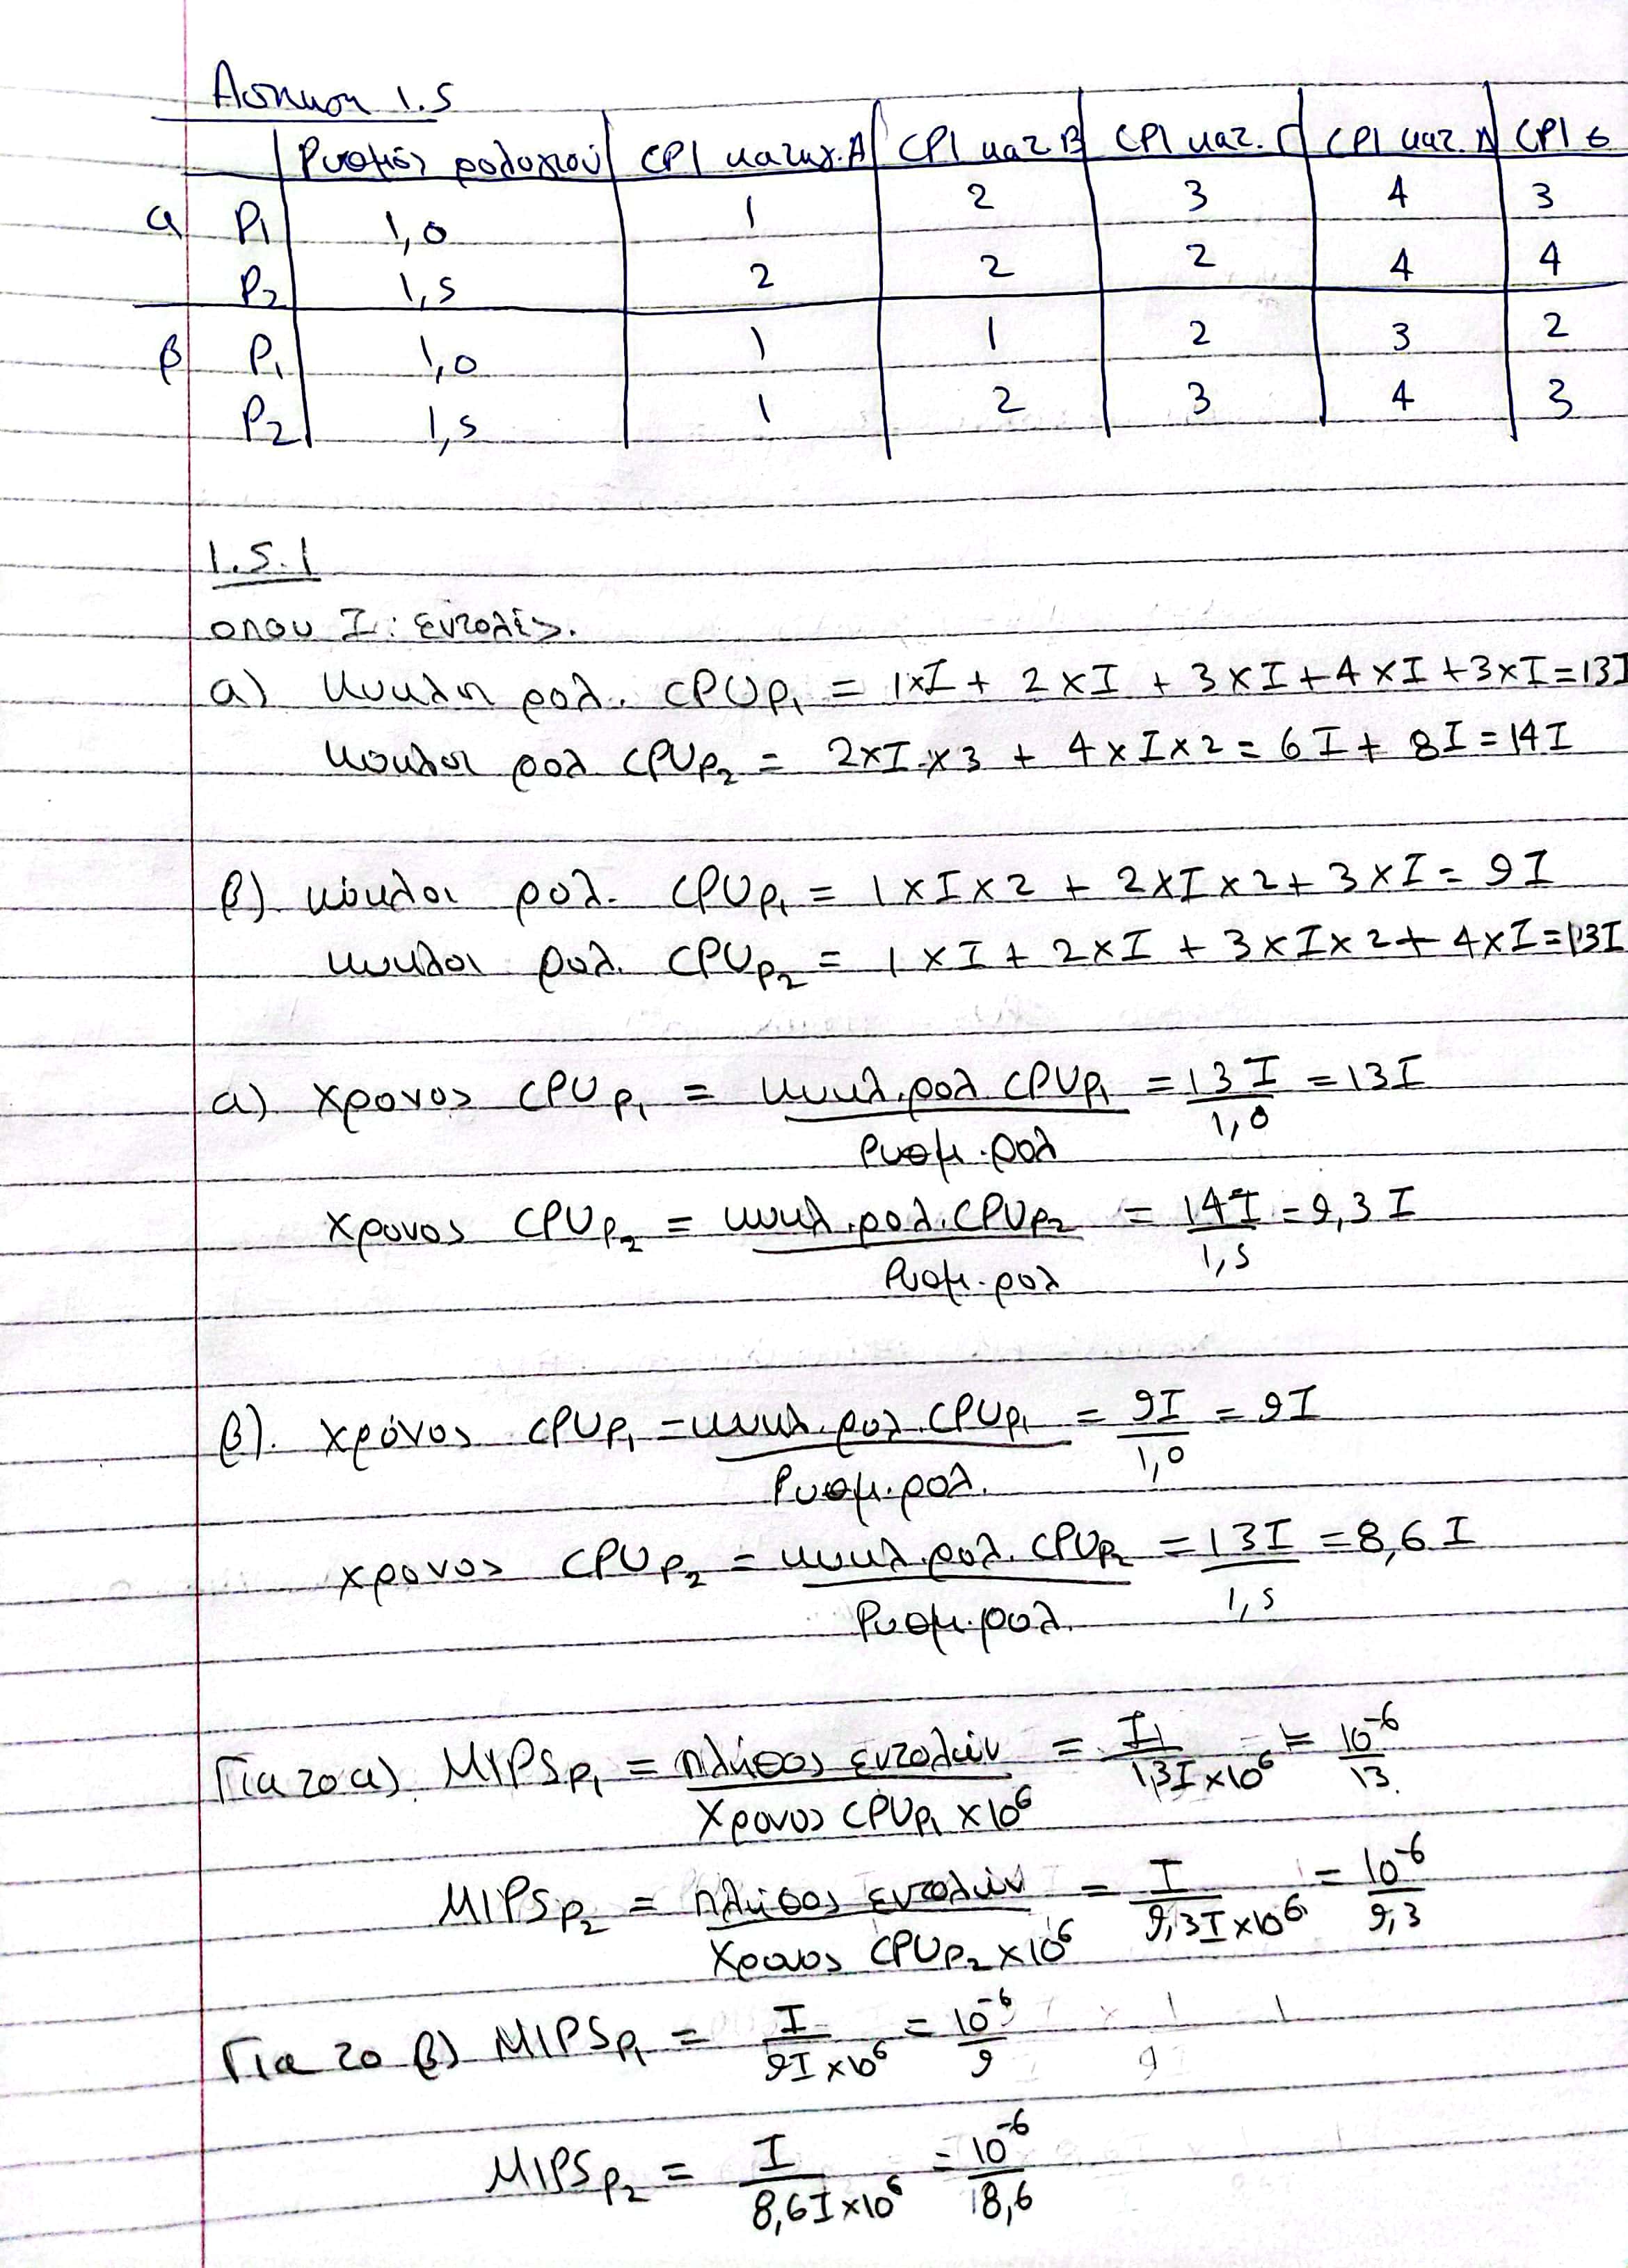 Ασκηση 1.5
Ρυθμός ρολογιού CPI κατηγ. Α CPI κατ Β CPI κατ. Γ CPI κατ. Δ CPI ε
α P1 1,0 1 2 3 4 3
P2 1,5 2 2 2 4 4
β P1 1,0 1 1 2 3 2
P2 1,5 1 2 3 4 3
1.5.1
οπου I: εντολές.
α) κυκλοι ρολ. CPU P1 = 1xI + 2xI + 3xI + 4xI + 3xI = 13I
κύκλοι ρολ CPU P2 = 2xI x 3 + 4xIx2 = 6I + 8I = 14I
β). κύκλοι ρολ. CPU P1 = 1xIx2 + 2xIx2 + 3xI = 9I
κυκλοι ρολ. CPU P2 = 1xI + 2xI + 3xIx2 + 4xI = 13I
α) χρονος CPU P1 = κυκλ.ρολ CPU P1 / Ρυθμ.ρολ = 13I / 1,0 = 13I
χρονος CPU P2 = κυκλ.ρολ.CPU P2 / Ρυθμ.ρολ = 14I / 1,5 = 9,3 I
β). χρόνος CPU P1 = κυκλ.ρολ.CPU P1 / Ρυθμ.ρολ. = 9I / 1,0 = 9I
χρονος CPU P2 = κυκλ.ρολ. CPU P2 / Ρυθμ.ρολ. = 13I / 1,5 = 8,6 I
Για το α) MIPS P1 = πλήθος εντολών / Χρονος CPU P1 x10^6 = I / 13I x10^6 = 10^-6 / 13.
MIPS P2 = πλήθος εντολών / Χρονος CPU P2 x10^6 = I / 9,3I x10^6 = 10^-6 / 9,3
Για το β) MIPS P1 = I / 9I x10^6 = 10^-6 / 9
MIPS P2 = I / 8,6I x10^6 = 10^-6 / 8,6